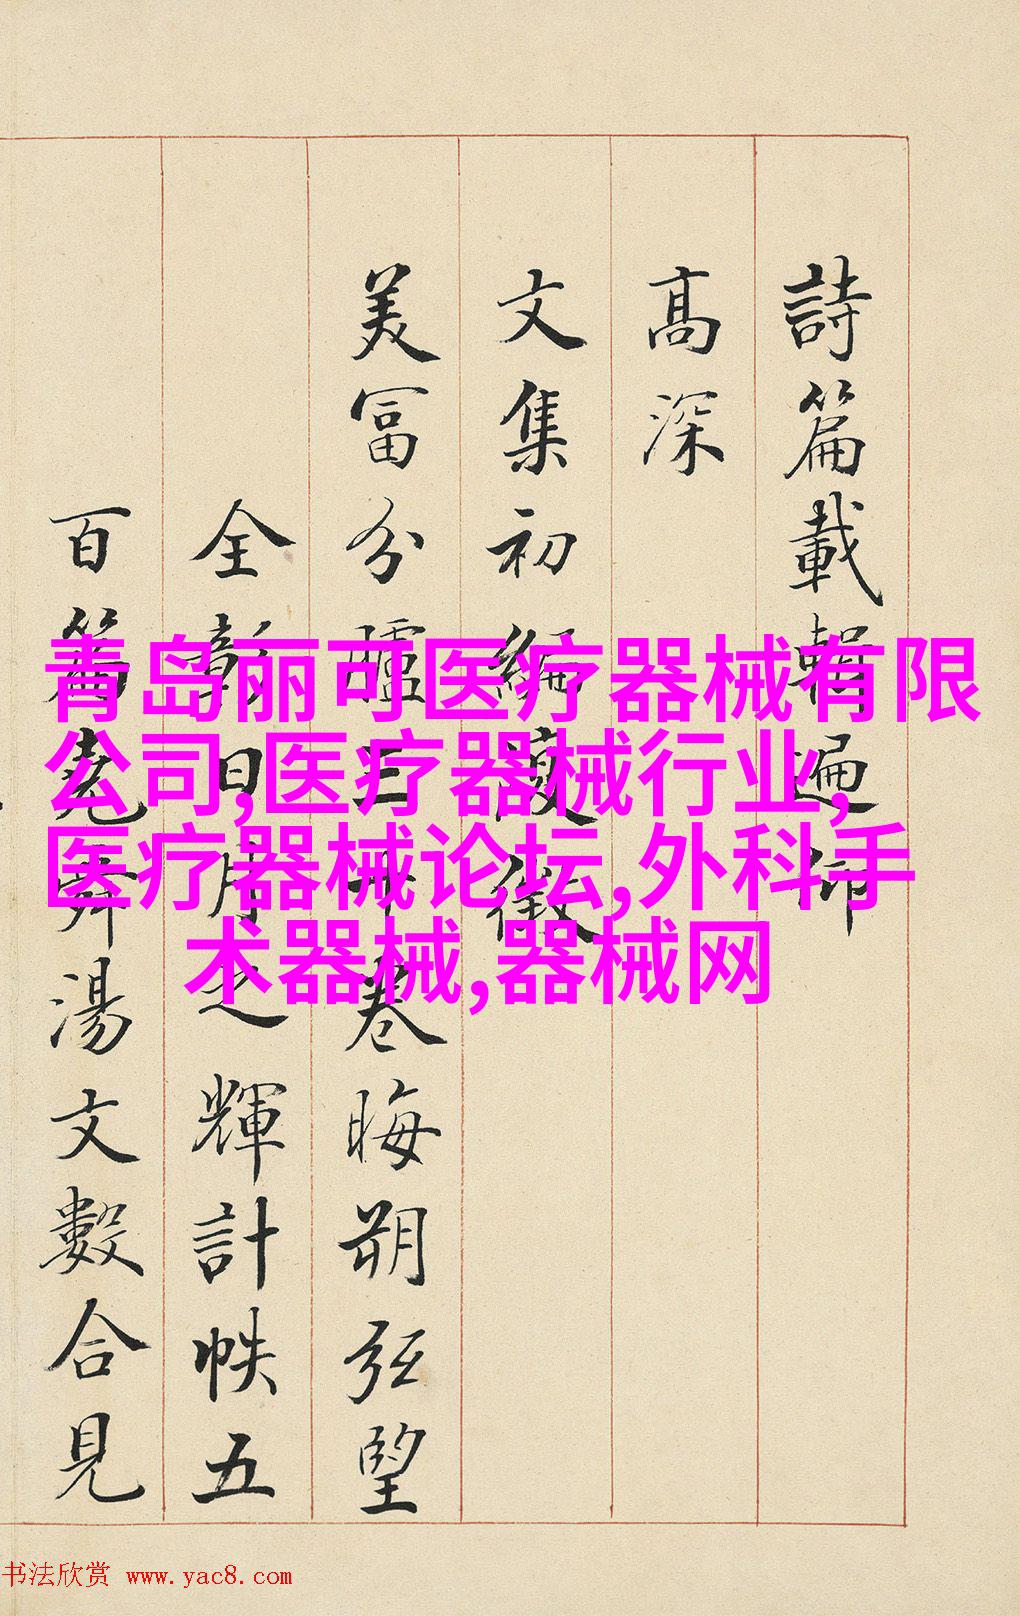 詩篇載輯遍師
高深
文集初編度徵
美富分臚三十卷晦朔弦望
全彰日月之輝計帙五
百篇堯舜湯文數合見
青岛丽可医疗器械有限
公司,医疗器械行业,
医疗器械论坛,外科手
术器械,器械网
书法欣赏 www.yac8.com